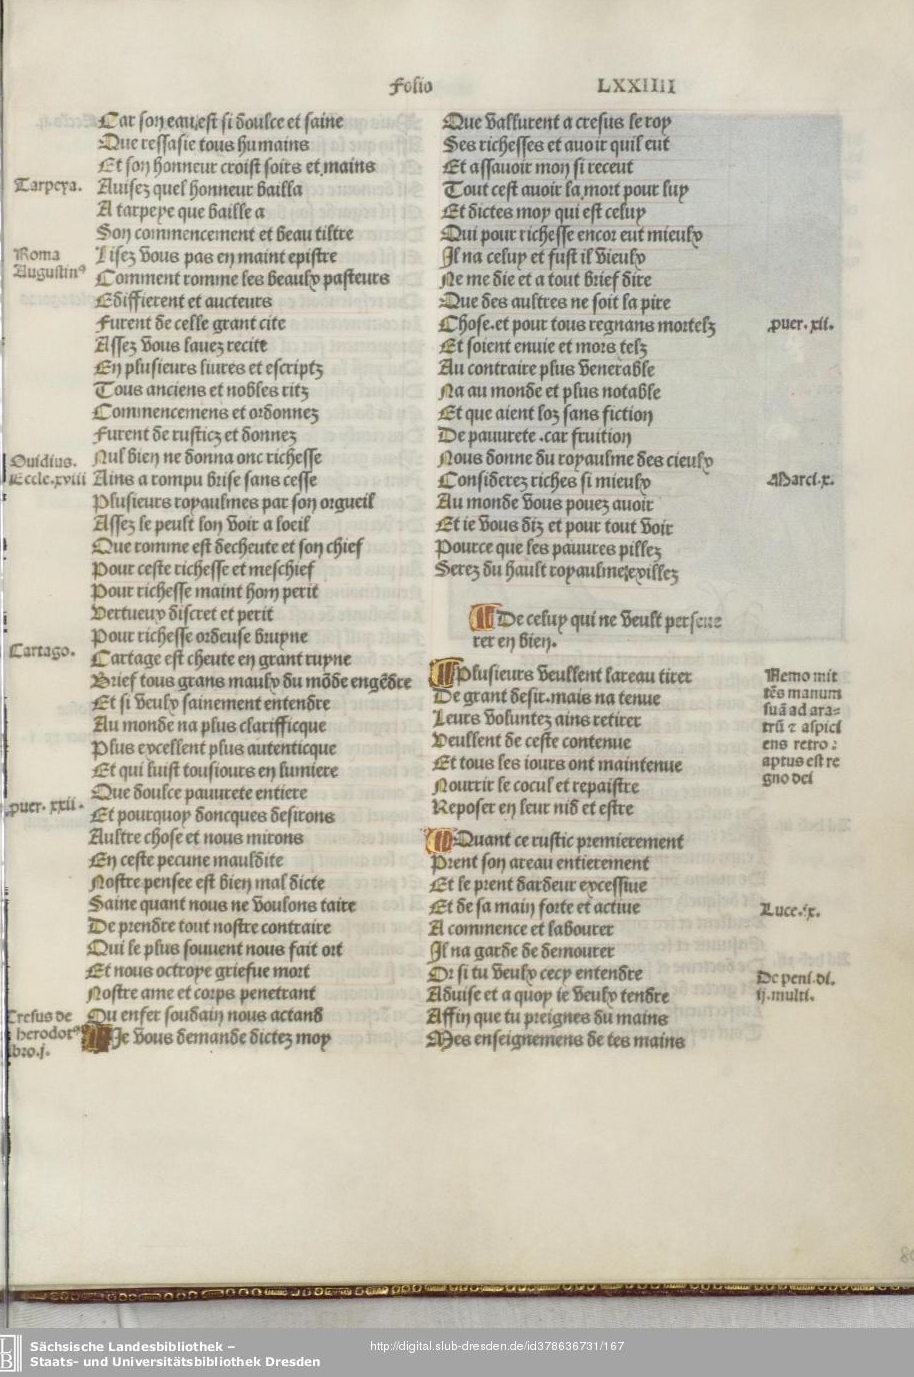 Folio LXXIIII
Car son eau est si doulce et saine
Que ressasie tous humains
Et son honneur croist soirs et mains
Tarpeya.
Auisez quel honneur bailla
A tarpeye que baille a
Son commencement et beau tiltre
Roma
Augustin⁹
Lisez vous pas en maint epistre
Comment comme les beaulx pasteurs
Ediffierent et aucteurs
Furent de celle grant cite
Assez vous sauez recite
En plusieurs liures et escriptz
Tous anciens et nobles ritz
Commencemens et ordonnez
Furent de rusticz et donnez
Ouidius.
Eccle.xviii
Nul bien ne donna onc richesse
Ains a rompu brise sans cesse
Plusieurs royaulmes par son orgueil
Assez le peult lon voir a loeil
Que romme est decheute et son chief
Pour ceste richesse et meschief
Pour richesse maint hom perit
Vertueux discret et perit
Pour richesse ordeuse bruyne
Cartago.
Cartage est cheute en grant ruyne
Brief tous grans maulx du mōde engēdre
Et si veulx sainement entendre
Au monde na plus clarifficque
Plus excellent plus autenticque
Et qui luist tousiours en lumiere
Que doulce pauurete entiere
puer. xxii.
Et pourquoy doncques desirons
Aultre chose et nous mirons
En ceste pecune mauldite
Nostre pensee est bien mal dicte
Saine quant nous ne voulons taire
De prendre tout nostre contraire
Qui le plus souuent nous fait ort
Et nous octroye griefue mort
Nostre ame et corps penetrant
Cresus de
herodot⁹
bro.j.
Ou enfer soudain nous actand
Je vous demande dictez moy
Que vallurent a cresus le roy
Ses richesses et auoir quil eut
Et assauoir mon si receut
Tout cest auoir la mort pour luy
Et dictes moy qui est celuy
Qui pour richesse encor eut mieulx
Il na celuy et fust il vieulx
Ne me die et a tout brief dire
Que des aultres ne soit la pire
puer. xii.
Chose.et pour tous regnans mortelz
Et soient enuie et mors telz
Au contraire plus venerable
Na au monde et plus notable
Et que aient loz sans fiction
De pauurete .car fruition
Nous donne du royaulme des cieulx
Marci.x.
Considerez riches si mieulx
Au monde vous pouez auoir
Et ie vous diz et pour tout voir
Pource que les pauures pillez
Serez du hault royaulme exillez
De celuy qui ne veult perseue
rer en bien.
Nemo mit
tēs manum
suā ad ara=
trū ⁊ aspici
ens retro :
aptus est re
gno dei
Plusieurs veullent lareau tirer
De grant desir.mais na tenue
Leurs voluntez ains retirer
Veullent de ceste contenue
Et tous les iours ont maintenue
Nourrir le cocul et repaistre
Reposer en leur nid et estre
Quant ce rustic premierement
Prent son areau entierement
Et se prent dardeur excessiue
Luce.ix.
Et de sa main forte et actiue
A commence et labourer
Il na garde de demourer
De peni.di.
ij.multi.
Or si tu veulx cecy entendre
Aduise et a quoy ie veulx tendre
Affin que tu preignes du mains
Mes enseignemens de tes mains
Sächsische Landesbibliothek –
Staats- und Universitätsbibliothek Dresden
http://digital.slub-dresden.de/id378636731/167